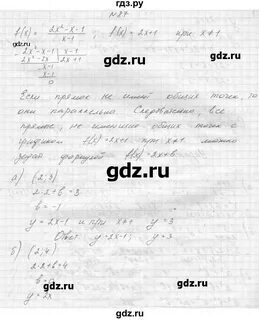 гдз.ру
N 87
f(x) = 2x² - x - 1 / x - 1 ; f(x) = 2x + 1 при x ≠ 1
2x² - x - 1 | x - 1
2x² - 2x | 2x + 1
x - 1
x - 1
0
gdz.ru
Если прямые не имеют общих точек, то
они параллельны. Следовательно, все
прямые, не имеющие общих точек с
графиком f(x) = 2x + 1 при x ≠ 1 можно
задать формулой f(x) = 2x + b
gdz.ru
а) (2; 3)
2·2 + b = 3
b = -1
y = 2x - 1 и при x ≠ 1 y = 3
Ответ y = 2x - 1; y = 3
gdz.ru
б) (2; 4)
2·2 + b = 4
b = 0
y = 2x
gdz.ru